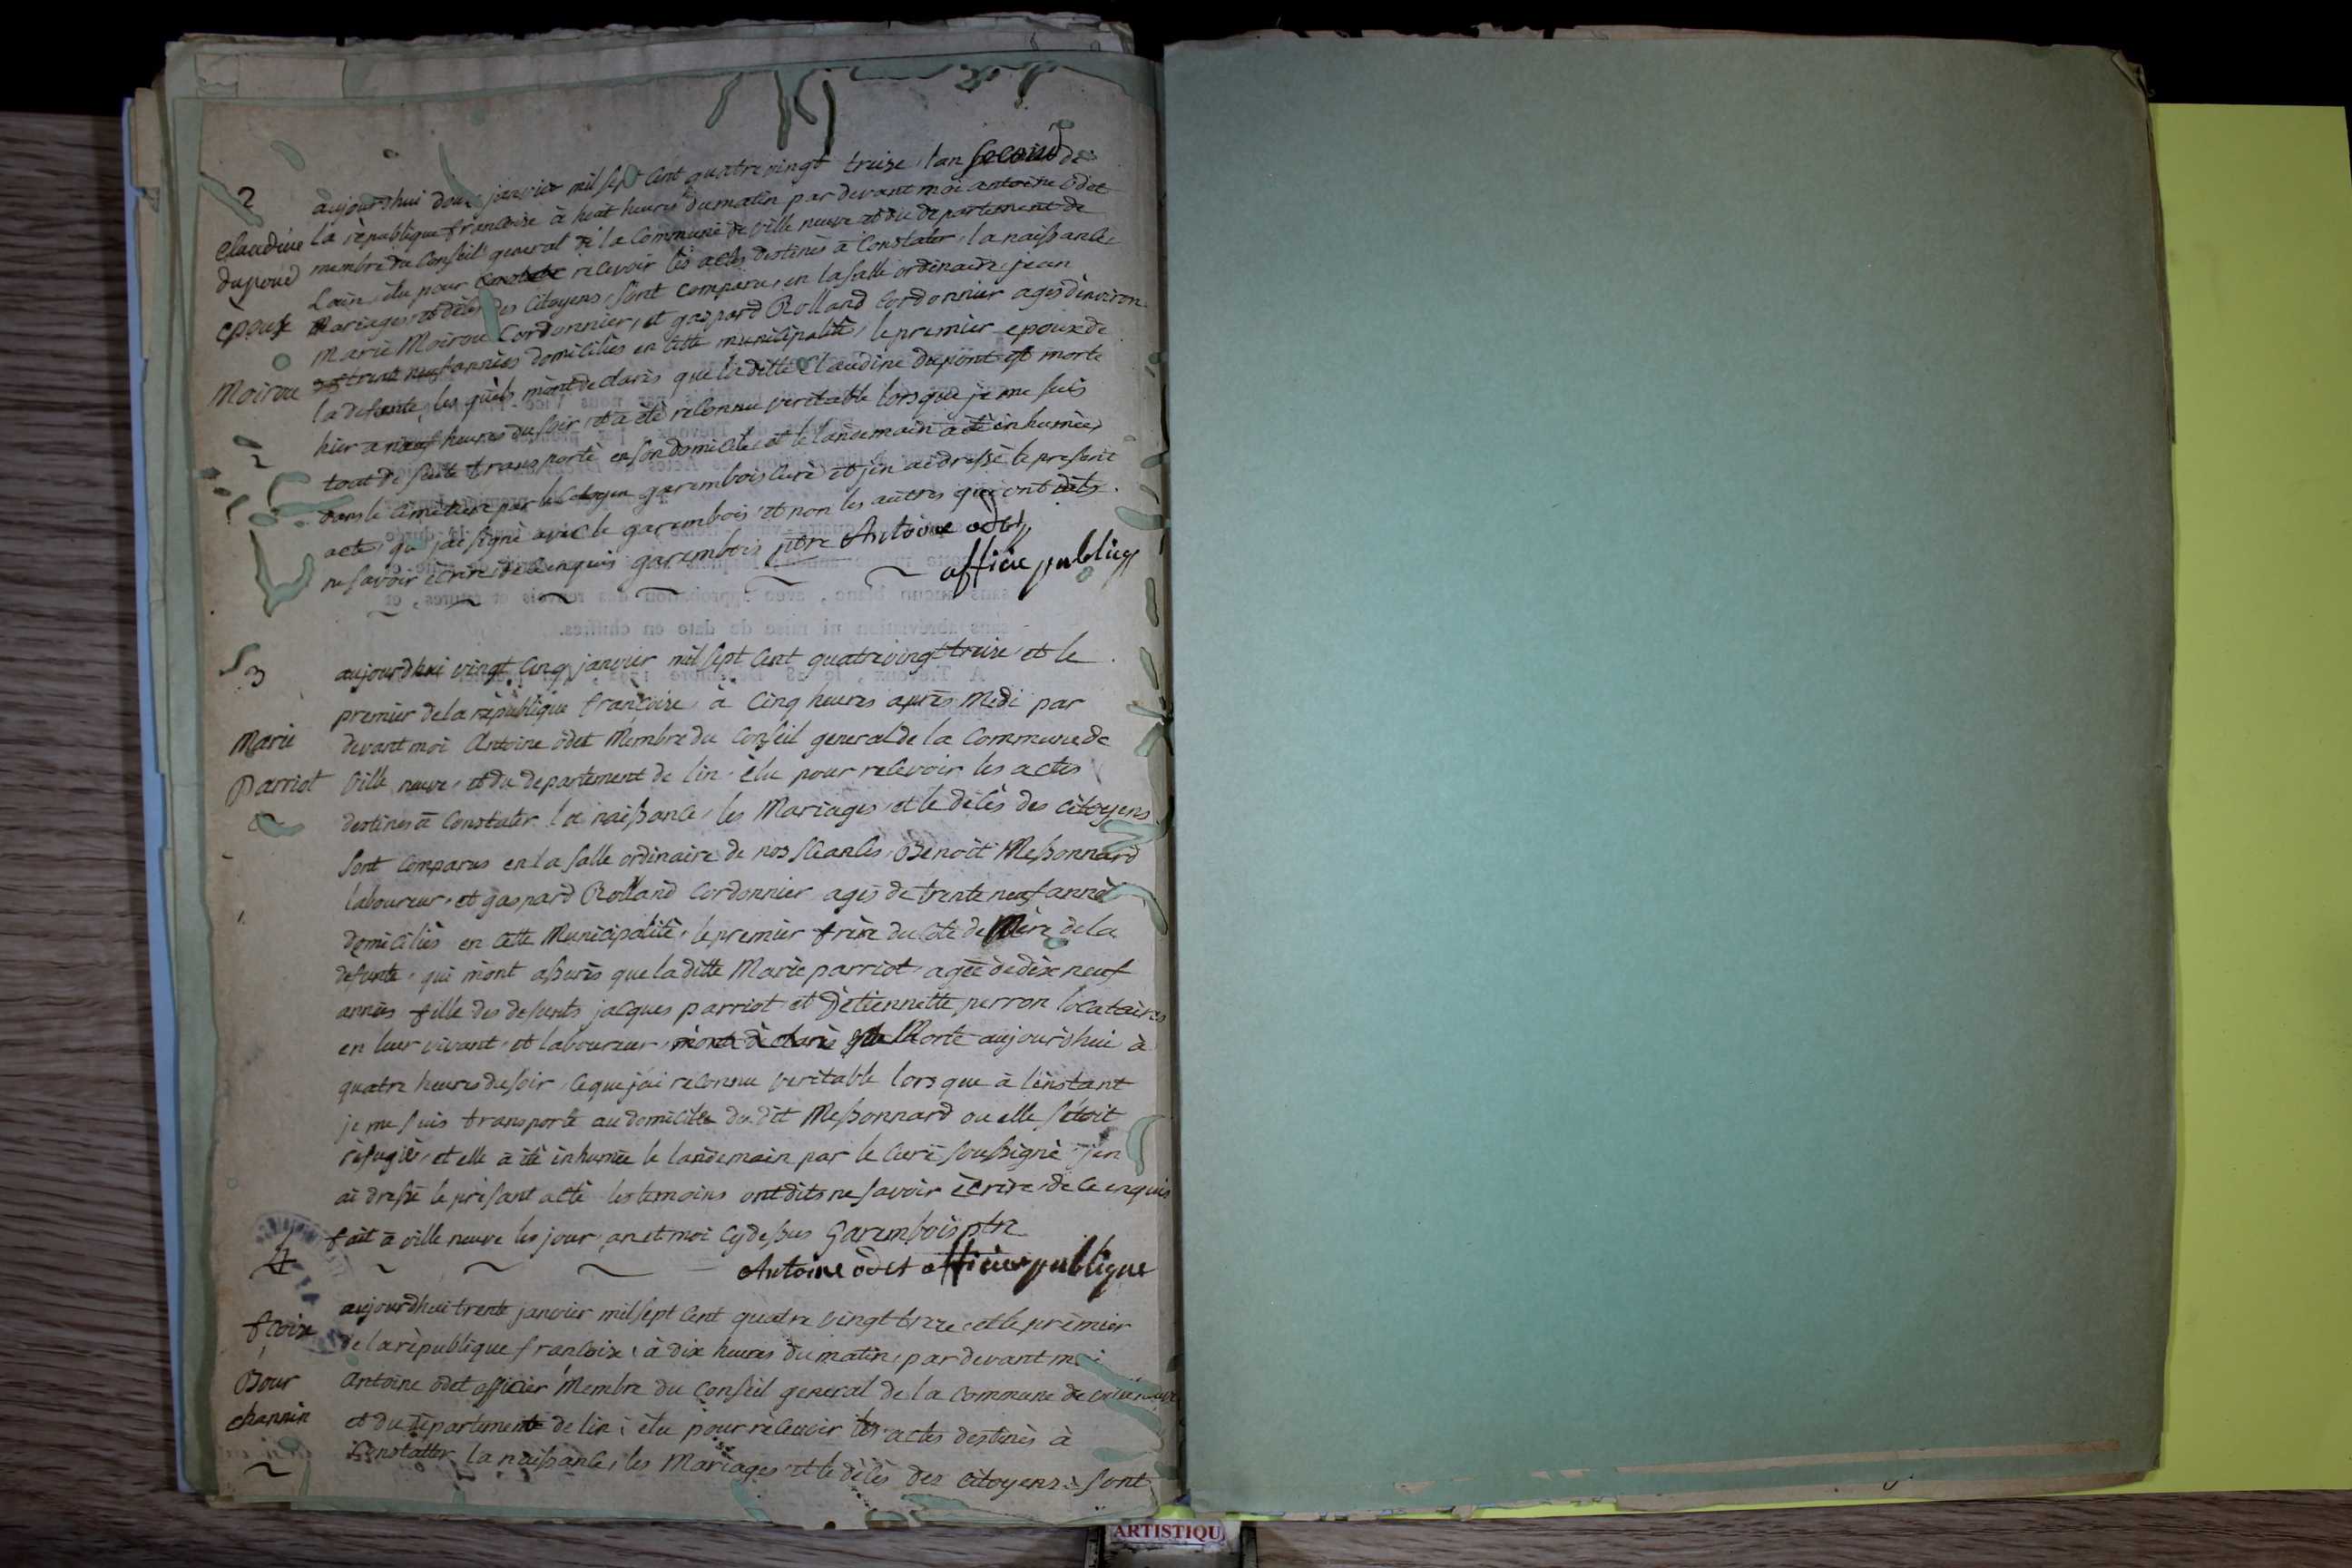 2
Claudine
dupond
epouse
Moirou
aujourdhui douze janvier mil sept cent quatrevingt treize, lan second de
la republique francoise à huit heures du matin par devant moi antoine odet
membre du Conseil general de la Commune de Ville neuve et du departement de
Lain, élu pour recevoir les actes destinès à Constater, la naissance
Mariages, et décès des Citoyens, sont comparu, en la salle ordinaire, jean
marie Moirou Cordonnier, et gaspard Rolland Cordonnier agés denviron
trente neuf années domicilies en cette municipalité, le premier epoux de
la defunte, les quels mont declarés que la ditte Claudine dupont est morte
hier a neuf heures du soir, et a eté reconnu veritable lorsque je me suis
tout de suite transporté en son domicile, et le landemain a eté inhumée,
dans le cimetiere par le Citoyen garembois Curé et jen ai dressé le present
acte, que jai signé avec le garembois et non les autres qui ont dits
ne savoir écrire, de ce enquis garembois ptre Antoine odet
officie publicq
3
Marie
Parriot
aujourdhui vingt cinq janvier mil sept cent quatrevingt treize et le
premier de la republique francoise, à Cinq heures après Midi par
devant moi Antoine odet Membre du Conseil general de la Commune de
Ville neuve, et du departement de lin, élu pour recevoir les actes
destines à Constater la naissance, les Mariages, et le décès des citoyens
sont comparus en la salle ordinaire de nos sceances, Benoit Messonnard
laboureur, et gaspard Rolland Cordonnier agés de trente neuf anné
domiciliés en cette Municipalité, le premier frère du coté de Mère de la
defunte, qui mont assurés que la ditte Marie parriot, agée de dix neuf
années fille des defunts jacques parriot et Détiennette perron locataires
en leur vivant, et laboureur, mont declarés que Morte aujourdhui à
quatre heures du soir, ce que jai reconnu veritable lors que à linstant
je me suis transporté au domicile du dit Messonnard ou elle sétoit
refugiée, et elle à été inhumée le landemain par le Curé soussigné jen
ai dressé le présant acte les temoins ont dits ne savoir écrire, de ce enquis
fait à ville neuve les jour, an et moi cy dessus Garembois ptre
Antoine odet officier publique
4
fcoise
Bour
channin
aujourdhui trente janvier mil sept Cent quatre vingt treze, et le premier
de la république francoise, à dix heures du matin, par devant moi
Antoine odet officier Membre du Conseil general de la Commune de
et du département de lin, élu pour recevoir les actes destinés à
Constatter la naissance, les Mariages et le décès des citoyens, sont
ARTISTIQU